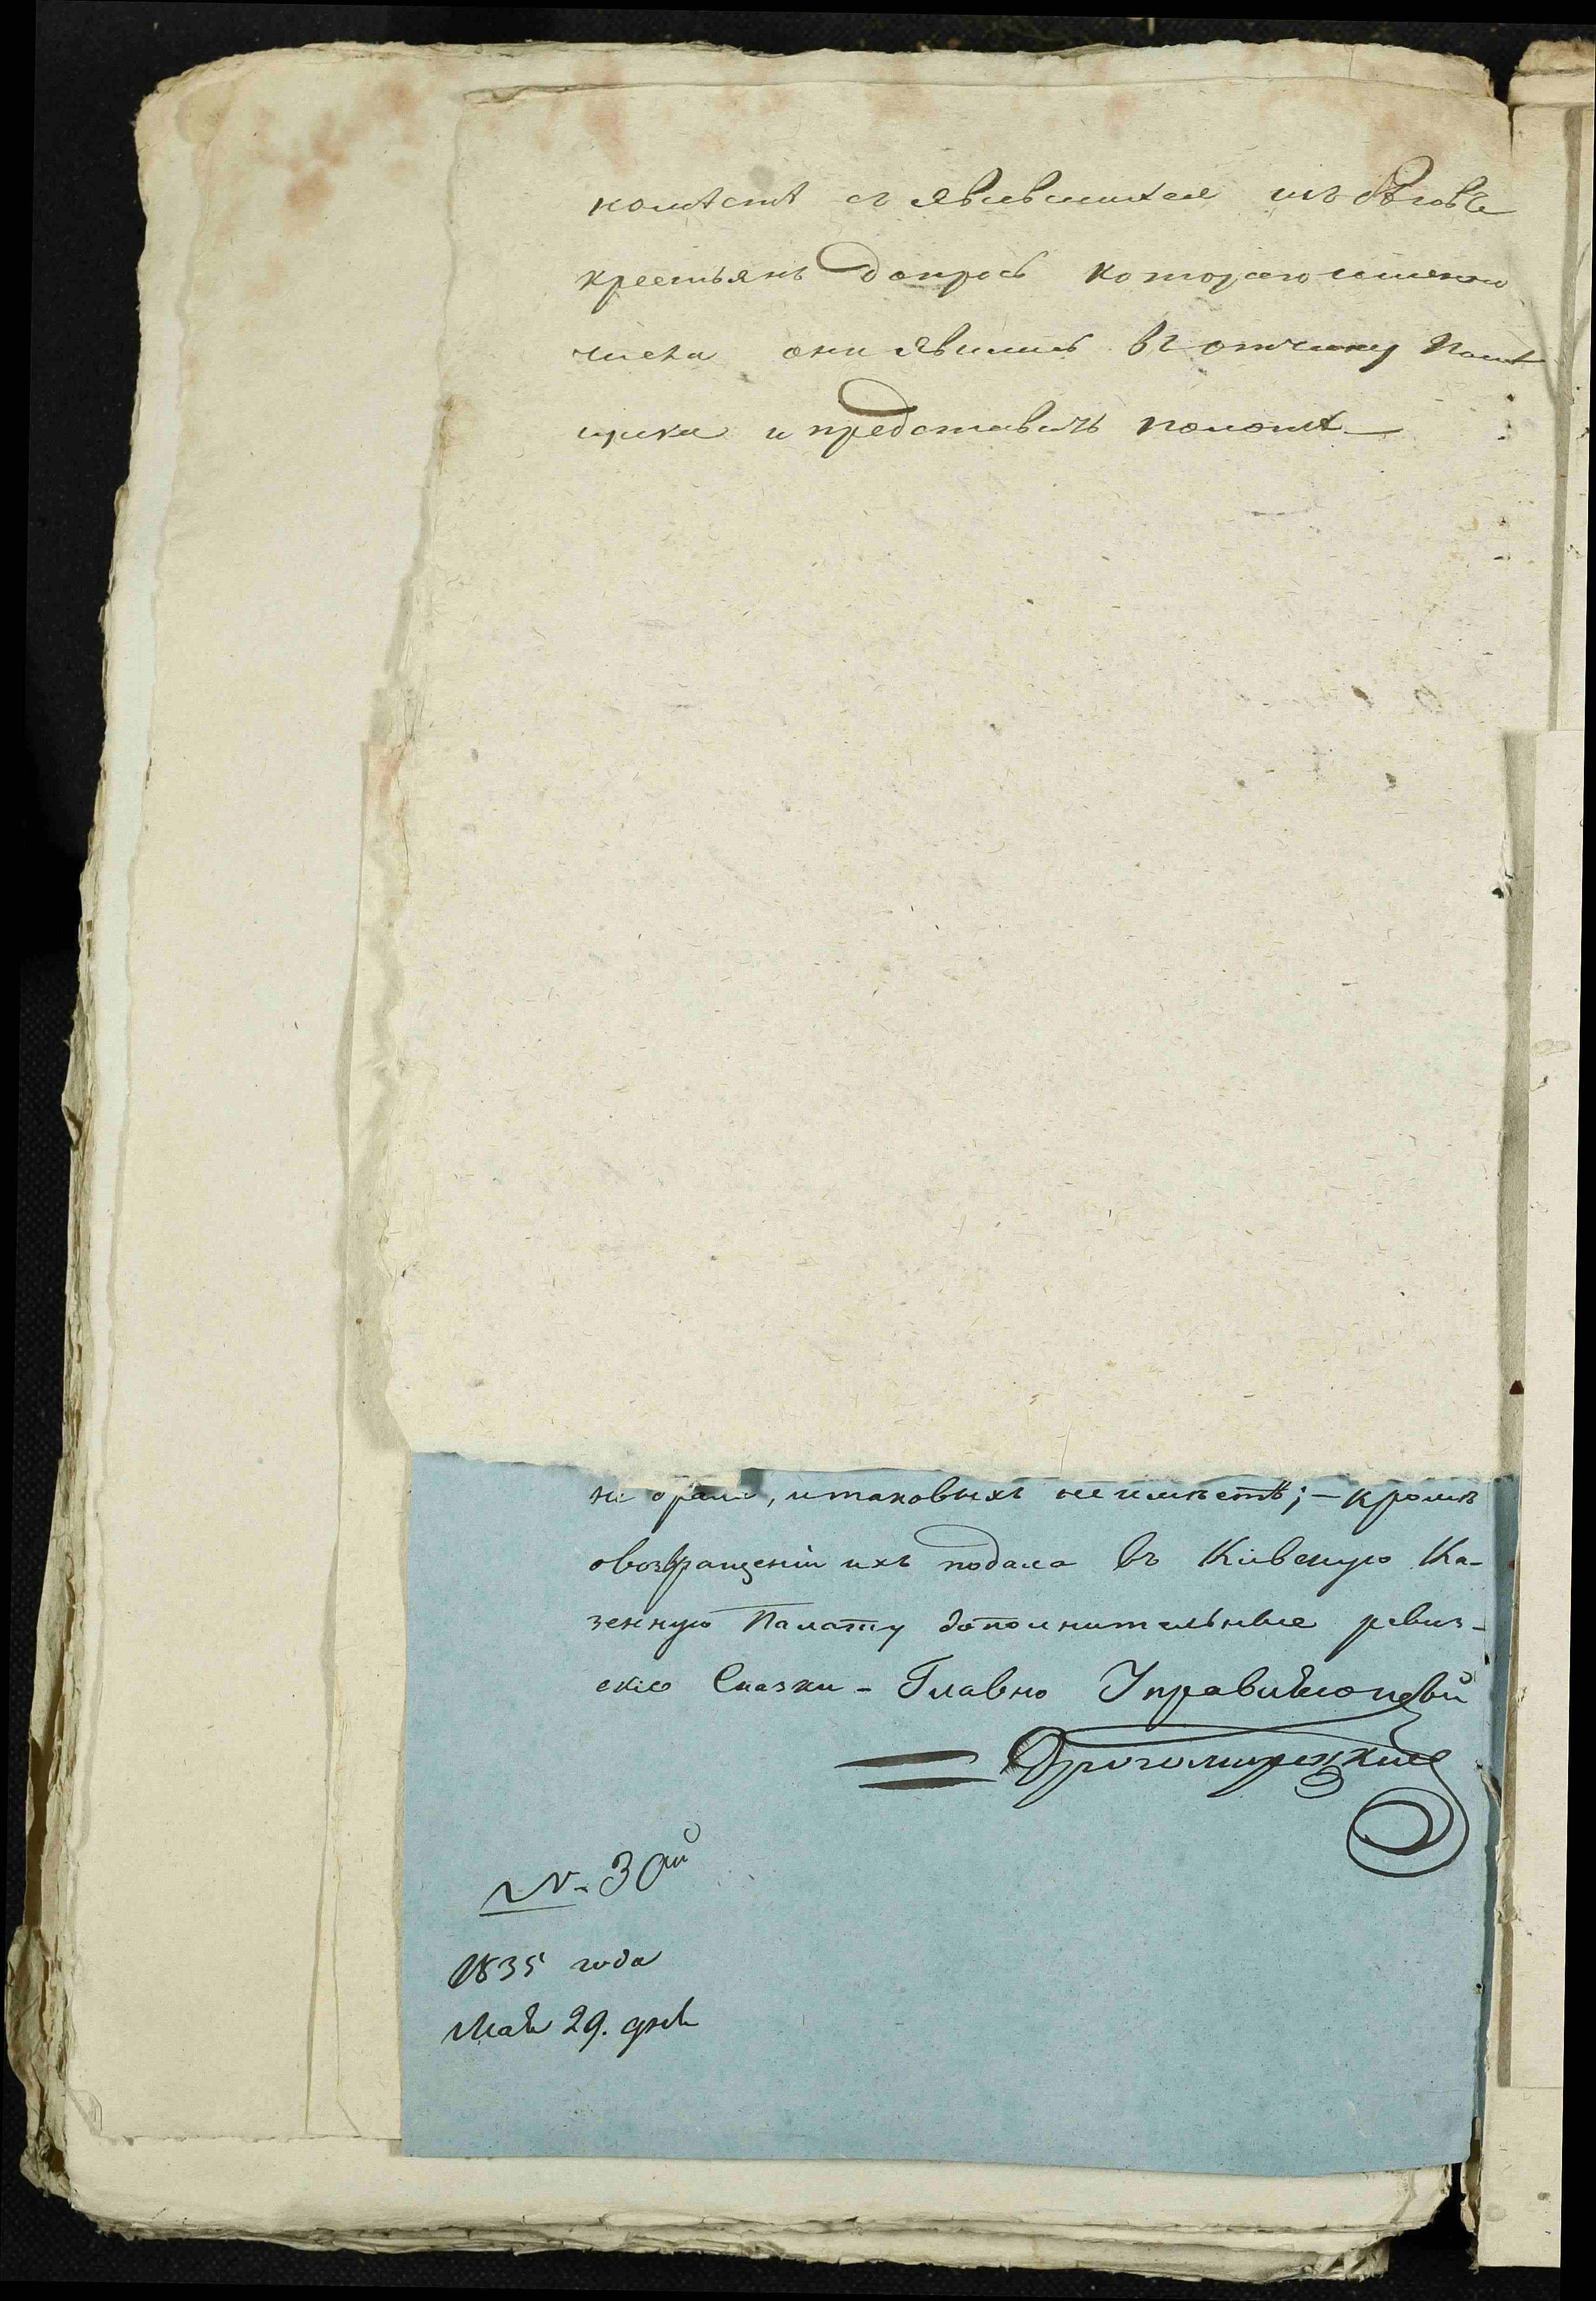 явившихся изъ бѣговъ
крестьянъ допросъ которого именно
числа они явились въ отчину помѣ
щика и представить
не брала, итаковыхъ неимѣетъ; - кромѣ
овозвращеніи ихъ подала въ Кіевскую Ка-
зенную Палату дополнительные ревиз-
скіе Сказки - Главно Управляющій
№. 30й
1835 года
Мая 29. дня